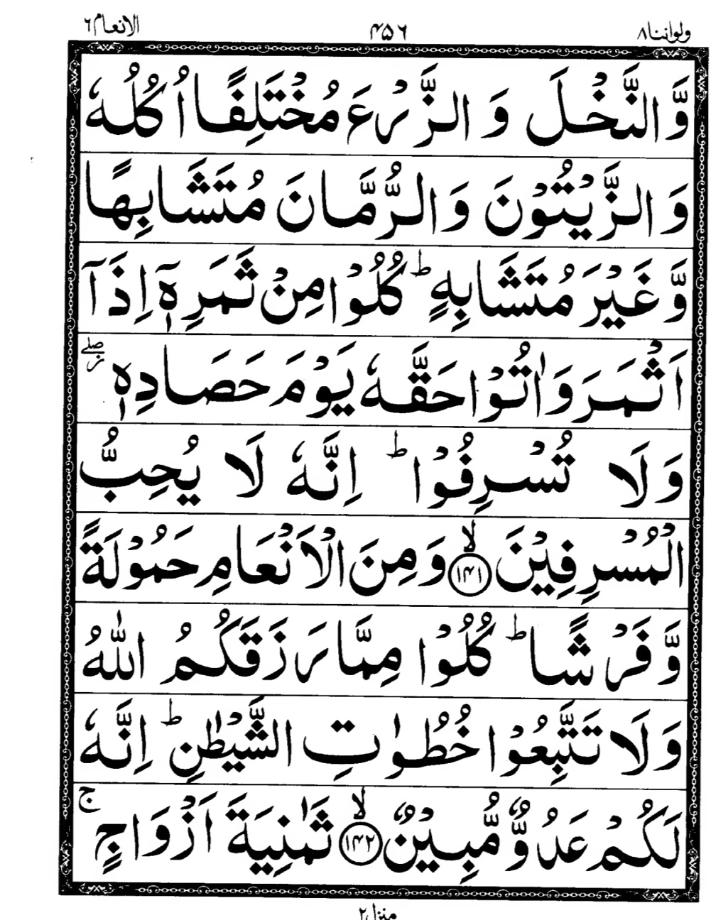 ولواننا ٨ ۴۵۶ الانعام ٦
وَّالنَّخْلَ وَ الزَّرْعَ مُخْتَلِفًا اُكُلُهٗ
وَ الزَّيْتُوْنَ وَ الرُّمَّانَ مُتَشَابِهًا
وَّ غَيْرَ مُتَشَابِهٍ ؕ كُلُوْا مِنْ ثَمَرِهٖۤ اِذَاۤ
اَثْمَرَ وَ اٰتُوْا حَقَّهٗ يَوْمَ حَصَادِهٖ ۖ ز
وَلَا تُسْرِفُوْا ؕ اِنَّهٗ لَا يُحِبُّ
الْمُسْرِفِيْنَ ۙ﴿۱۴۱﴾ وَ مِنَ الْاَنْعَامِ حَمُوْلَةً
وَّ فَرْشًا ؕ كُلُوْا مِمَّا رَزَقَكُمُ اللّٰهُ
وَلَا تَتَّبِعُوْا خُطُوٰتِ الشَّيْطٰنِ ؕ اِنَّهٗ
لَكُمْ عَدُوٌّ مُّبِيْنٌ ۙ﴿۱۴۲﴾ ثَمٰنِيَةَ اَزْوَاجٍ ۚ
منزل ٢